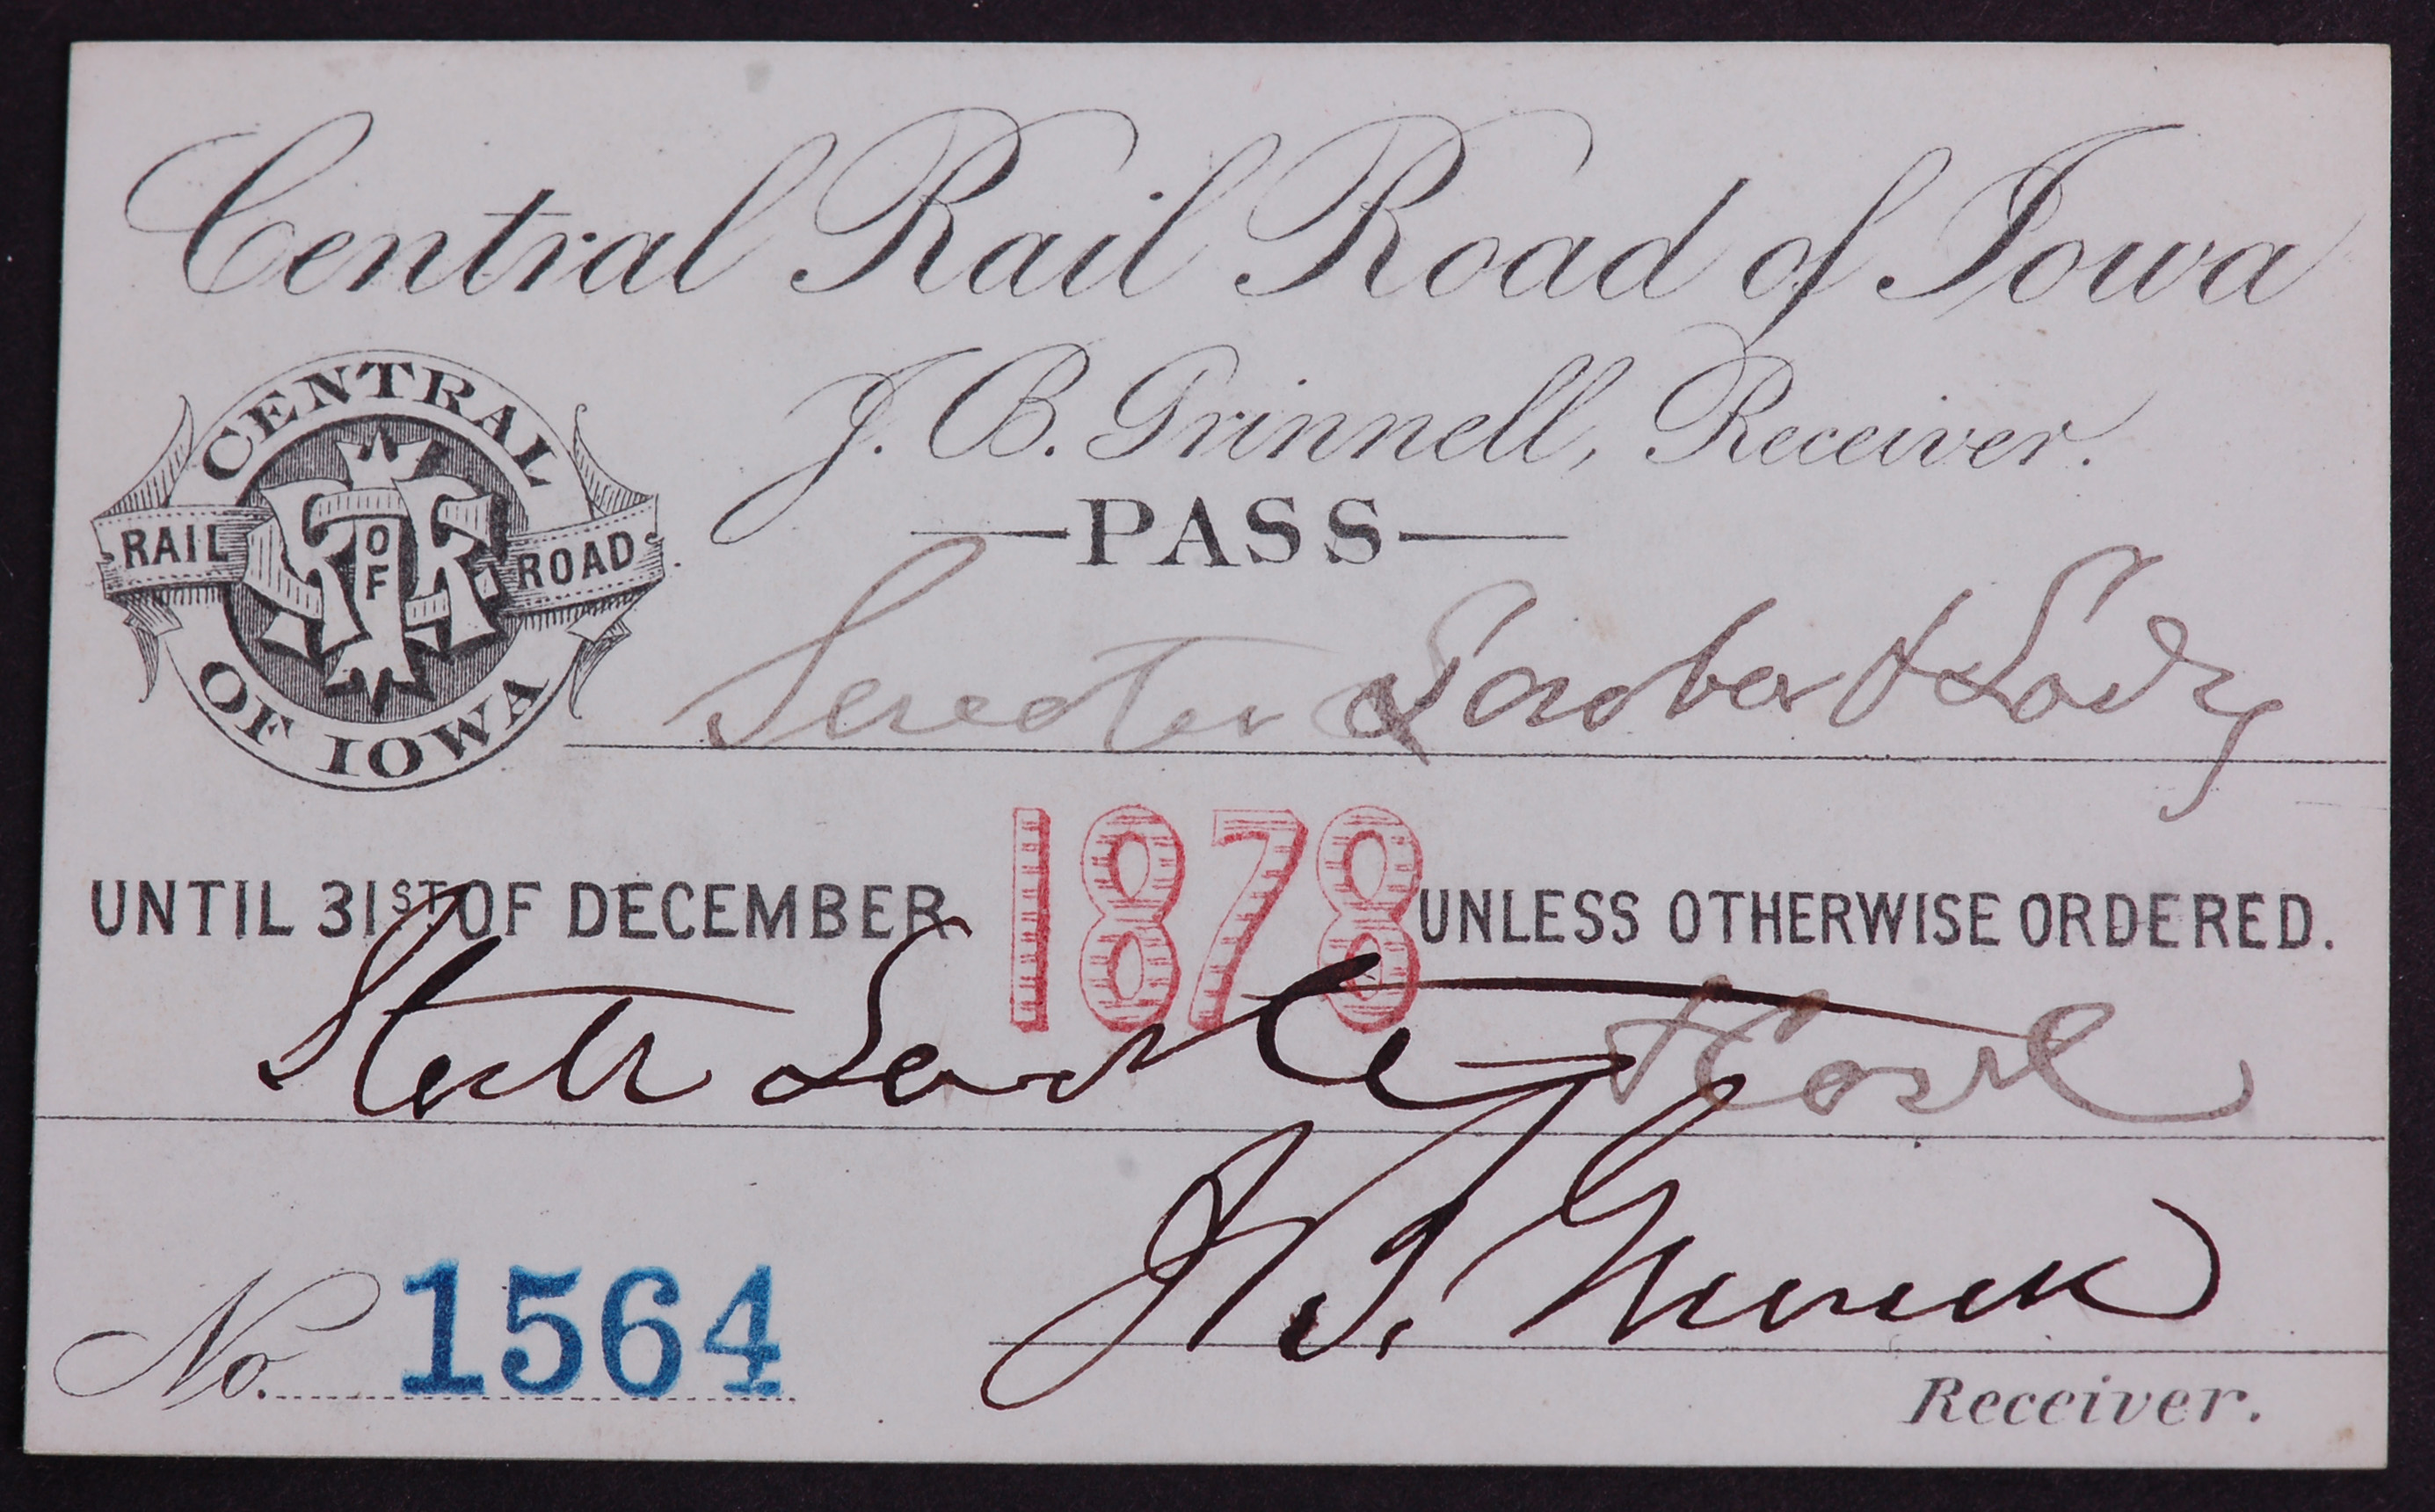 Central Rail Road of Iowa
J. B. Grinnell, Receiver.
CENTRAL
RAIL ROAD
OF IOWA
OF
PASS
& Lady
UNTIL 31ST OF DECEMBER 1878 UNLESS OTHERWISE ORDERED.
No. 1564
Receiver.